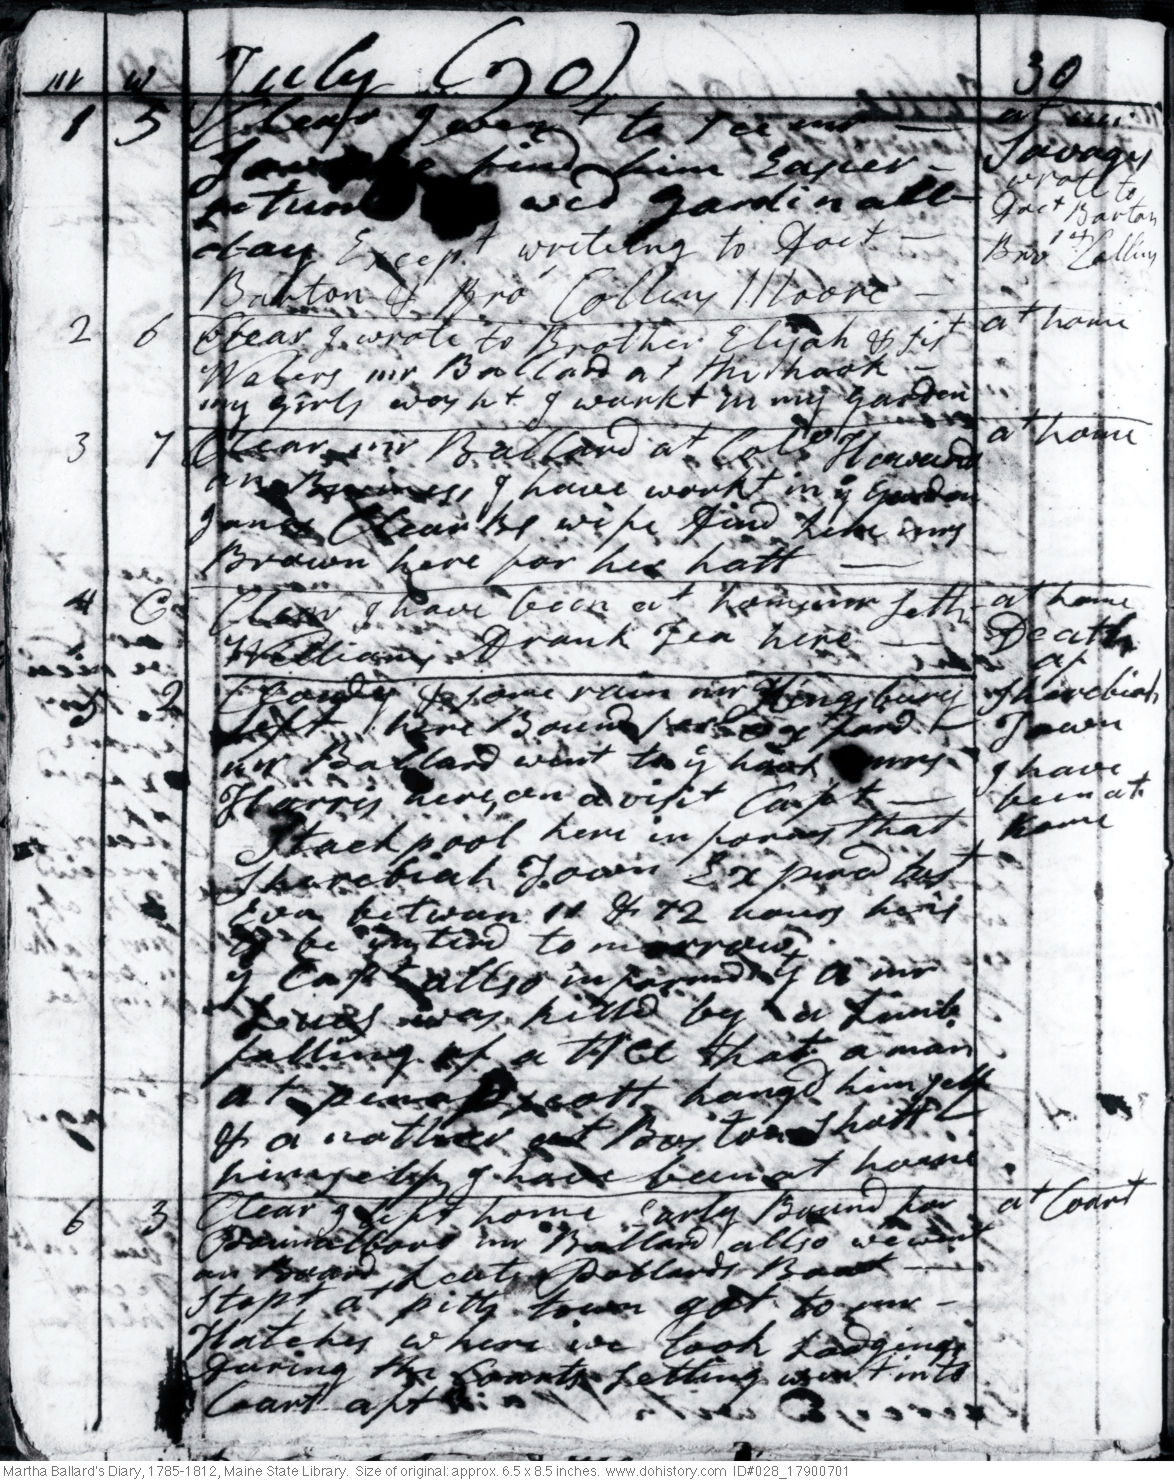 m w July (90) 30
1 5 Clear I went to see mr — at mr
find him Easier — Savages
wed gardin all wrote to
day Except writeing to Doct — Doct Barton
Barton & Bro Collins Moore — Bro Collins
2 6 Clear I wrote to Brother Elijah & sist at home
Waters mr Ballard at the hook —
my girls washt I workt in my Garden
3 7 Clear mr Ballard at Col Howards at home
on Business I have workt in ye garden
Jones Clearks wife dind here mrs
Brown here for her hatt —
4 C Clear I have been at home mr Seth at home
Williams Drank Tea here — Death of
5 2 Cloudy & some rain mr Kingsbury Sherebiah
left here Bound for Oxford — Town
mr Ballard went to ye hook mrs I have
Harris here on a visit Capt — been at
Stackpool here informs that home
Sherebiah Town Expired last
Evn between 11 & 12 hours he is
to be interd tomorrow
ye Capt allso informd yt a mr
was killd by a Limb
falling of a tree that a man
at penobscott hangd himself
& a nother at Boston shott
himself I have been at home
6 3 Clear I left home Early Bound for at Coart
Pownalboro mr Ballard allso we went
on Board Leut Pollards Boat —
Stopt at pitts town got to mr —
Hatches where we took Lodgings
during the Coarts setting went into
Coart aft
Martha Ballard's Diary, 1785-1812, Maine State Library. Size of original: approx. 6.5 x 8.5 inches. www.dohistory.com ID#028_17900701